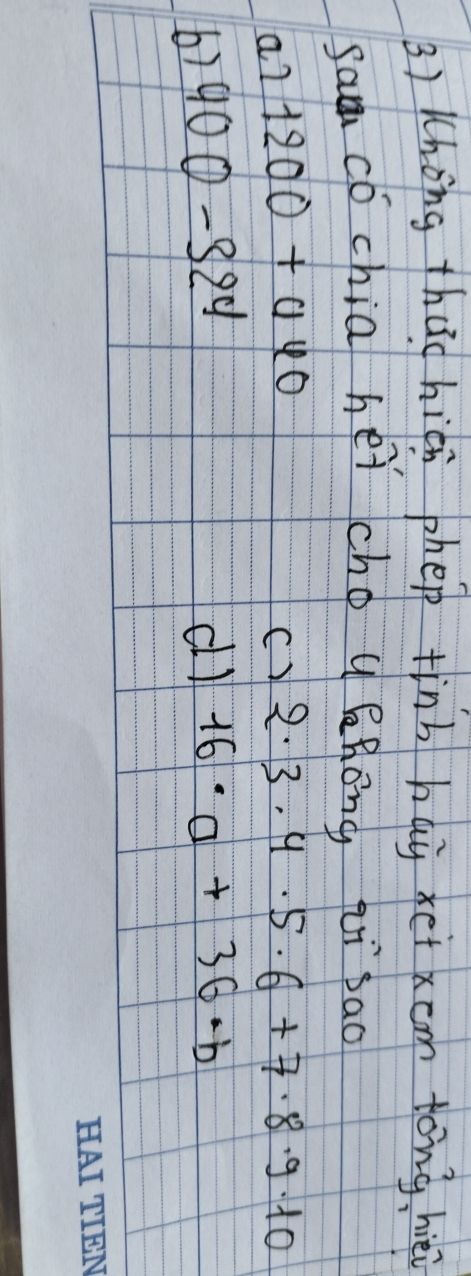 3) Không thực hiện phép tính hãy xét xem tổng, hiệu
sau có chia hết cho 4 không vì sao
a) 1200 + 440    c) 2.3.4.5.6 + 7.8.9.10
b) 400 - 324    d) 16.a + 36.b
HAI TIEN